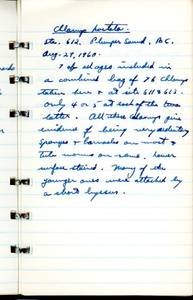 Chlamys hastata.
Sta. 612. Plumper Sound, B.C.
Aug. 29, 1960.
7 of all ages included in
a combined bag of 76 Chlamys
taken here & at site 611 & 613.
only 4 or 5 at each of the two
latter. All these Chlamys give
evidence of being very sedentary
sponges & barnacles on most &
tube worms on some, lower
surface stained. Many of the
younger ones were attached by
a short byssus.